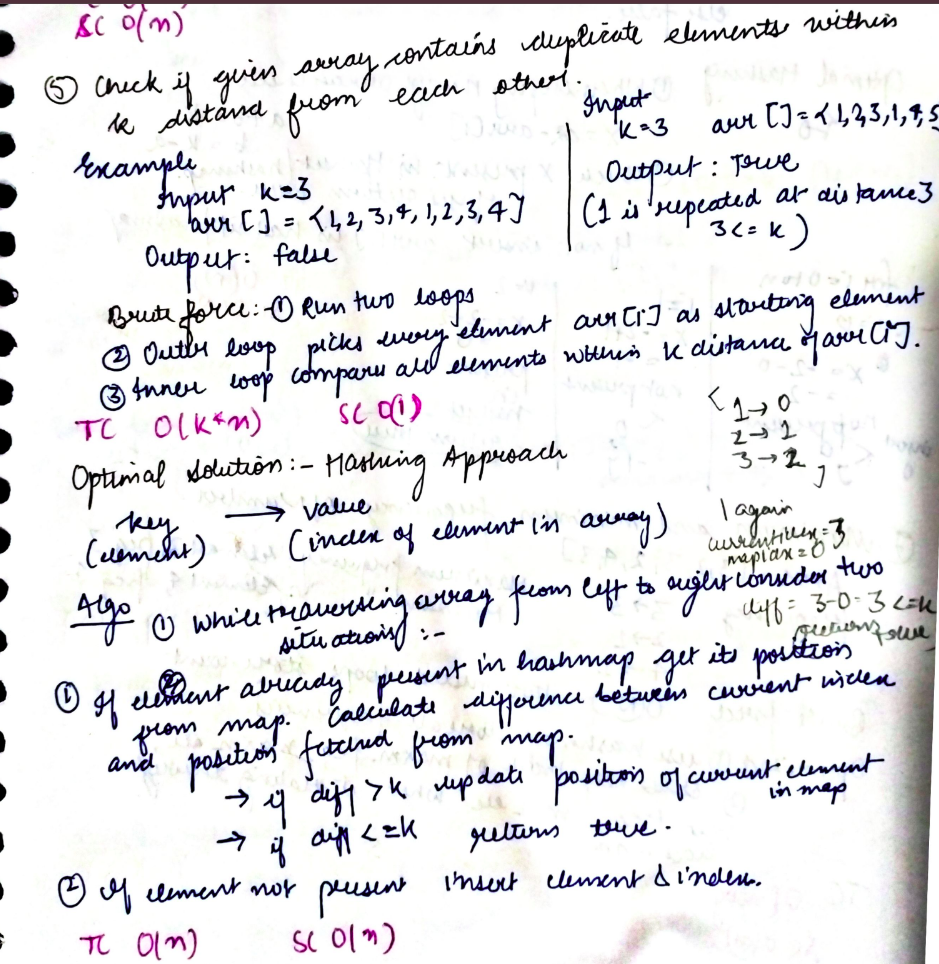 SC O(n)
⑤ Check if given array contains duplicate elements within
k distand from each other.
Example
Input k=3
arr [] = {1, 2, 3, 4, 1, 2, 3, 4}
Output: false
Input
k=3 arr [] = {1,2,3,1,4,5
Output : True
(1 is repeated at distance 3
3 <= k)
Brute force:- ① Run two loops
② Outer loop picks every element arr[i] as starting element
③ Inner loop compares all elements within k distance of arr[i].
TC O(k*n) SC O(1)
{ 1→0
2→1
3→2 }
Optimal Solution :- Hashing Approach
key → value
(element) (index of element in array)
1 again
currentidx=3
mapidx=0
diff = 3-0=3 <=k
return true
Algo ① While traversing array from left to right consider two
situations :-
① If element already present in hashmap get its position
from map. Calculate difference between current index
and position fetched from map.
→ if diff >k update position of current element
in map
→ if diff <=k return true.
② If element not present insert element & index.
TC O(n) SC O(n)